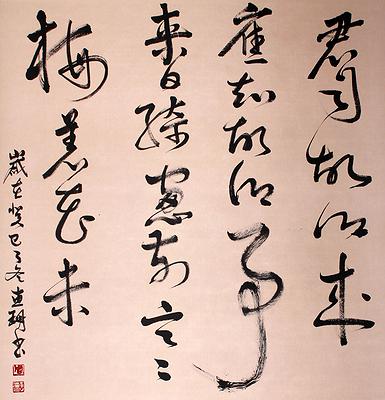 君自故鄉来
應知故鄉事
来日綺窗前寒
梅著花未
歲在癸巳之冬書